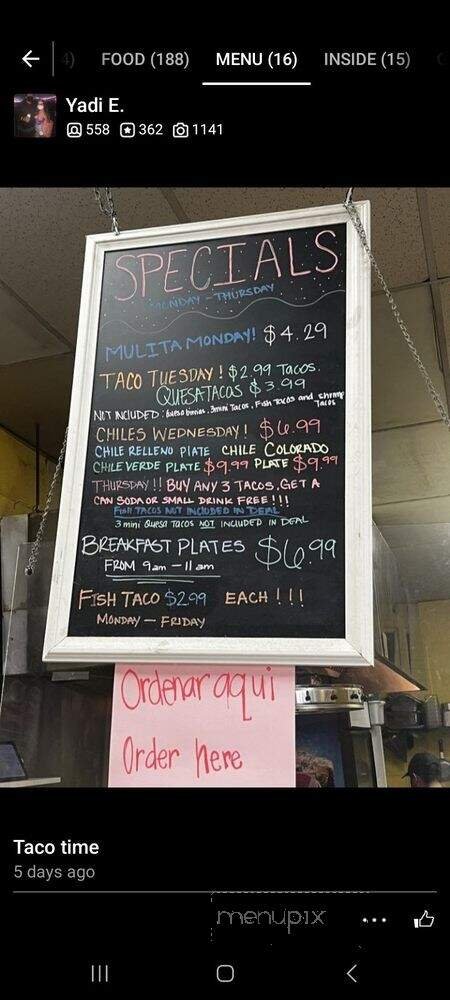 4) FOOD (188) MENU (16) INSIDE (15)
Yadi E.
558 362 1141
SPECIALS
MONDAY - THURSDAY
MULITA MONDAY! $4.29
TACO TUESDAY! $2.99 TACOS.
QUESATACOS $3.99
NOT INCLUDED: Queso birrias, 3mini Tacos, Fish Tacos and shrimp
Tacos
CHILES WEDNESDAY! $6.99
CHILE RELLENO PLATE CHILE COLORADO
CHILE VERDE PLATE $9.99 PLATE $9.99
THURSDAY!! BUY ANY 3 TACOS, GET A
CAN SODA OR SMALL DRINK FREE!!!
FISH TACOS NOT INCLUDED IN DEAL
3 mini Quesa Tacos NOT INCLUDED IN DEAL
BREAKFAST PLATES $6.99
FROM 9am - 11am
FISH TACO $2.99 EACH!!!
MONDAY - FRIDAY
Ordenar aqui
Order here
Taco time
5 days ago
menupix